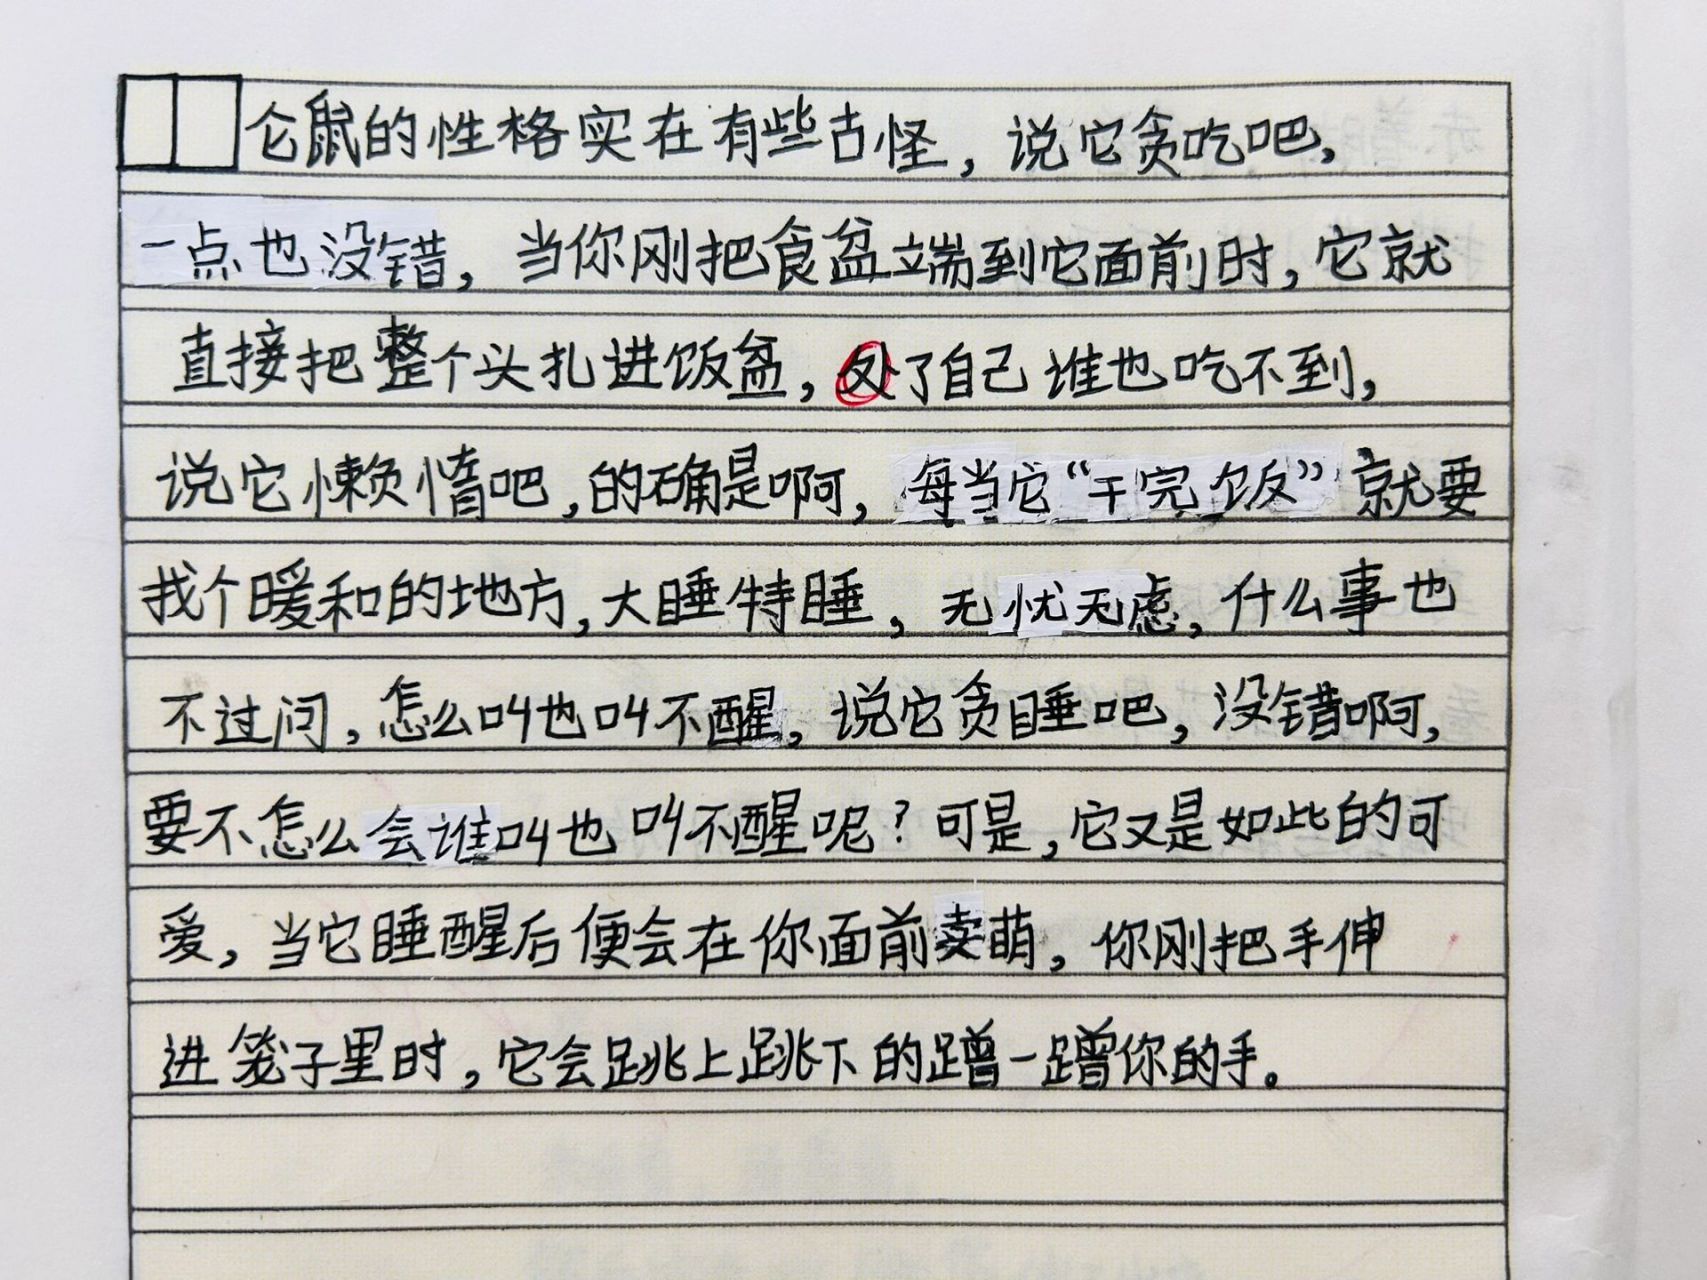 仑鼠的性格实在有些古怪，说它贪吃吧，
一点也没错，当你刚把食盆端到它面前时，它就
直接把整个头扎进饭盆，处了自己谁也吃不到，
说它懒惰吧，的确是啊，每当它“干完饭”就要
找个暖和的地方，大睡特睡，无忧无虑，什么事也
不过问，怎么叫也叫不醒，说它贪睡吧，没错啊，
要不怎么会谁叫也叫不醒呢？可是，它又是如此的可
爱，当它睡醒后便会在你面前卖萌，你刚把手伸
进笼子里时，它会跳上跳下的蹭一蹭你的手。